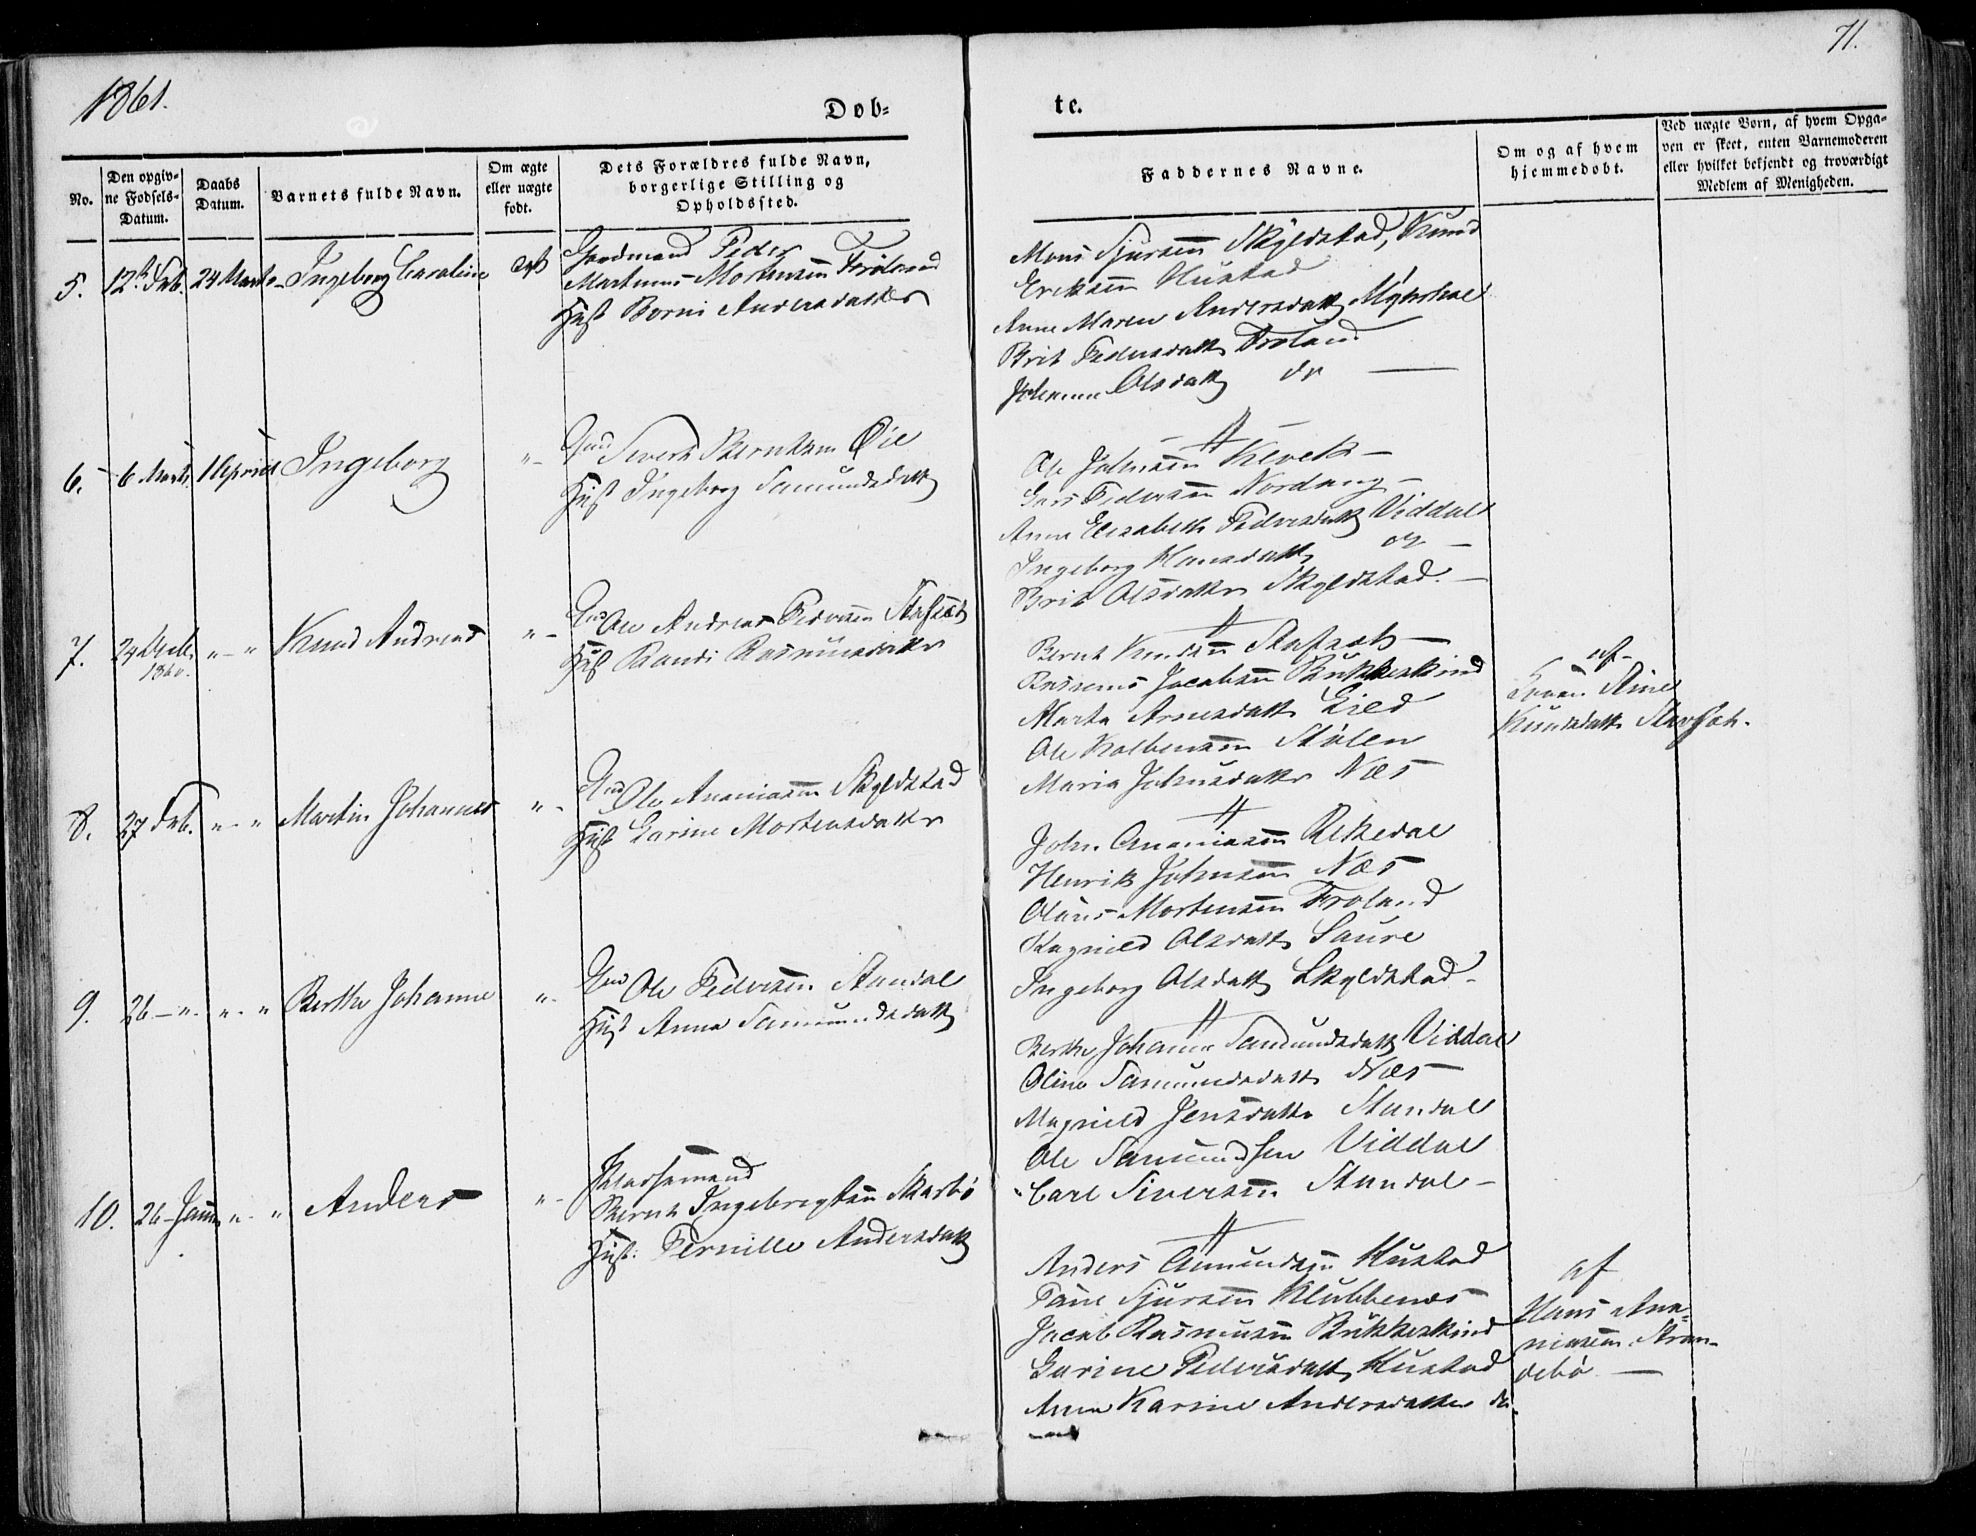 1861.
71.
Døb-
te.
No.
Den opgiv-
ne Fødsels-
Datum.
Daabs
Datum.
Barnets fulde Navn.
Om ægte
eller uægte
født.
Dets Forældres fulde Navn,
borgerlige Stilling og
Opholdssted.
Faddernes Navne.
Om og af hvem
hjemmedøbt.
Ved uægte Børn, af hvem Opga-
ven er skeet, enten Barnemoderen
eller hvilket bekjendt og troværdigt
Medlem af Menigheden.
5. 12te Feb. 24 Marts Ingeborg Caroline
Gaardmand Peder
Martinus Mortensen Froland
Hust Borni Andersdatter
Mons Sjursen Skyldstad, Knud
Eriksen Hustad
Anne Maren Andersdatt Myhrhol
Brit Pedersdatt Froland
Johanne Olsdatt do
6. 6 Marts 1 April Ingeborg "
Gmd Sivert Berntsen Øie
Hust Ingeborg Samundsdatt
Ole Johnsen
Lars Pedersen Nordang
Anne Elisabeth Pedersdatt Viddal
Ingeborg Hansdatt og
Brit Olsdatter Skyldstad.
7. 24 Decb. " " Knud Andreas "
1860.
Gmd Ole Andreas Pedersen Stafsæt
Hust Randi Rasmusdatter
Bernt Knudsen Stafsæth
Rasmus Jacobsen Bukkeskind
Marta Arnesdatt Eied
Ole Kolbensen Stølen
Maria Johnsdatter Næs
af
Stine
Knudsdatt
8. 27 Feb. " " Martin Johannes "
Gmd Ole Ananiasen Skyldstad
Hust Garine Mortensdatter
John Ananiasen Rekedal
Henrik Johnsen Næs
Olaus Mortensen Froland
Ragnild Olsdatt Saure
Ingeborg Olsdatt Skyldstad
9. 26 " " " Berthe Johanne "
Gmd Ole Pedersen Standal
Hust Anne Samundsdatt
Berthe Johanne Samundsdatt Viddal
Oline Samundsdatt Næs
Magnild Jensdatte Standal
Ole Samundsen Viddal
Carl Siversen Standal
10. 26 Janu " " Anders "
Bernt Ingebrigtsen Skarbø
Hust. Pernille Andersdatt
Anders Amundsen Hustad
Sjursen Klubbenæs
Jacob Rasmusen Bukkeskind
Garine Pedersdatt Hustad
Anne Karine Andersdatter do.
af
Hans Ana-
niasen Stran-
debø